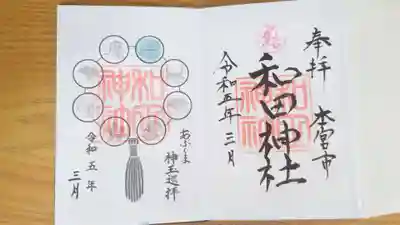 奉拝
本宮市
和田神社
令和五年 三月
あぶくま
神玉巡拝
令和五年
三月